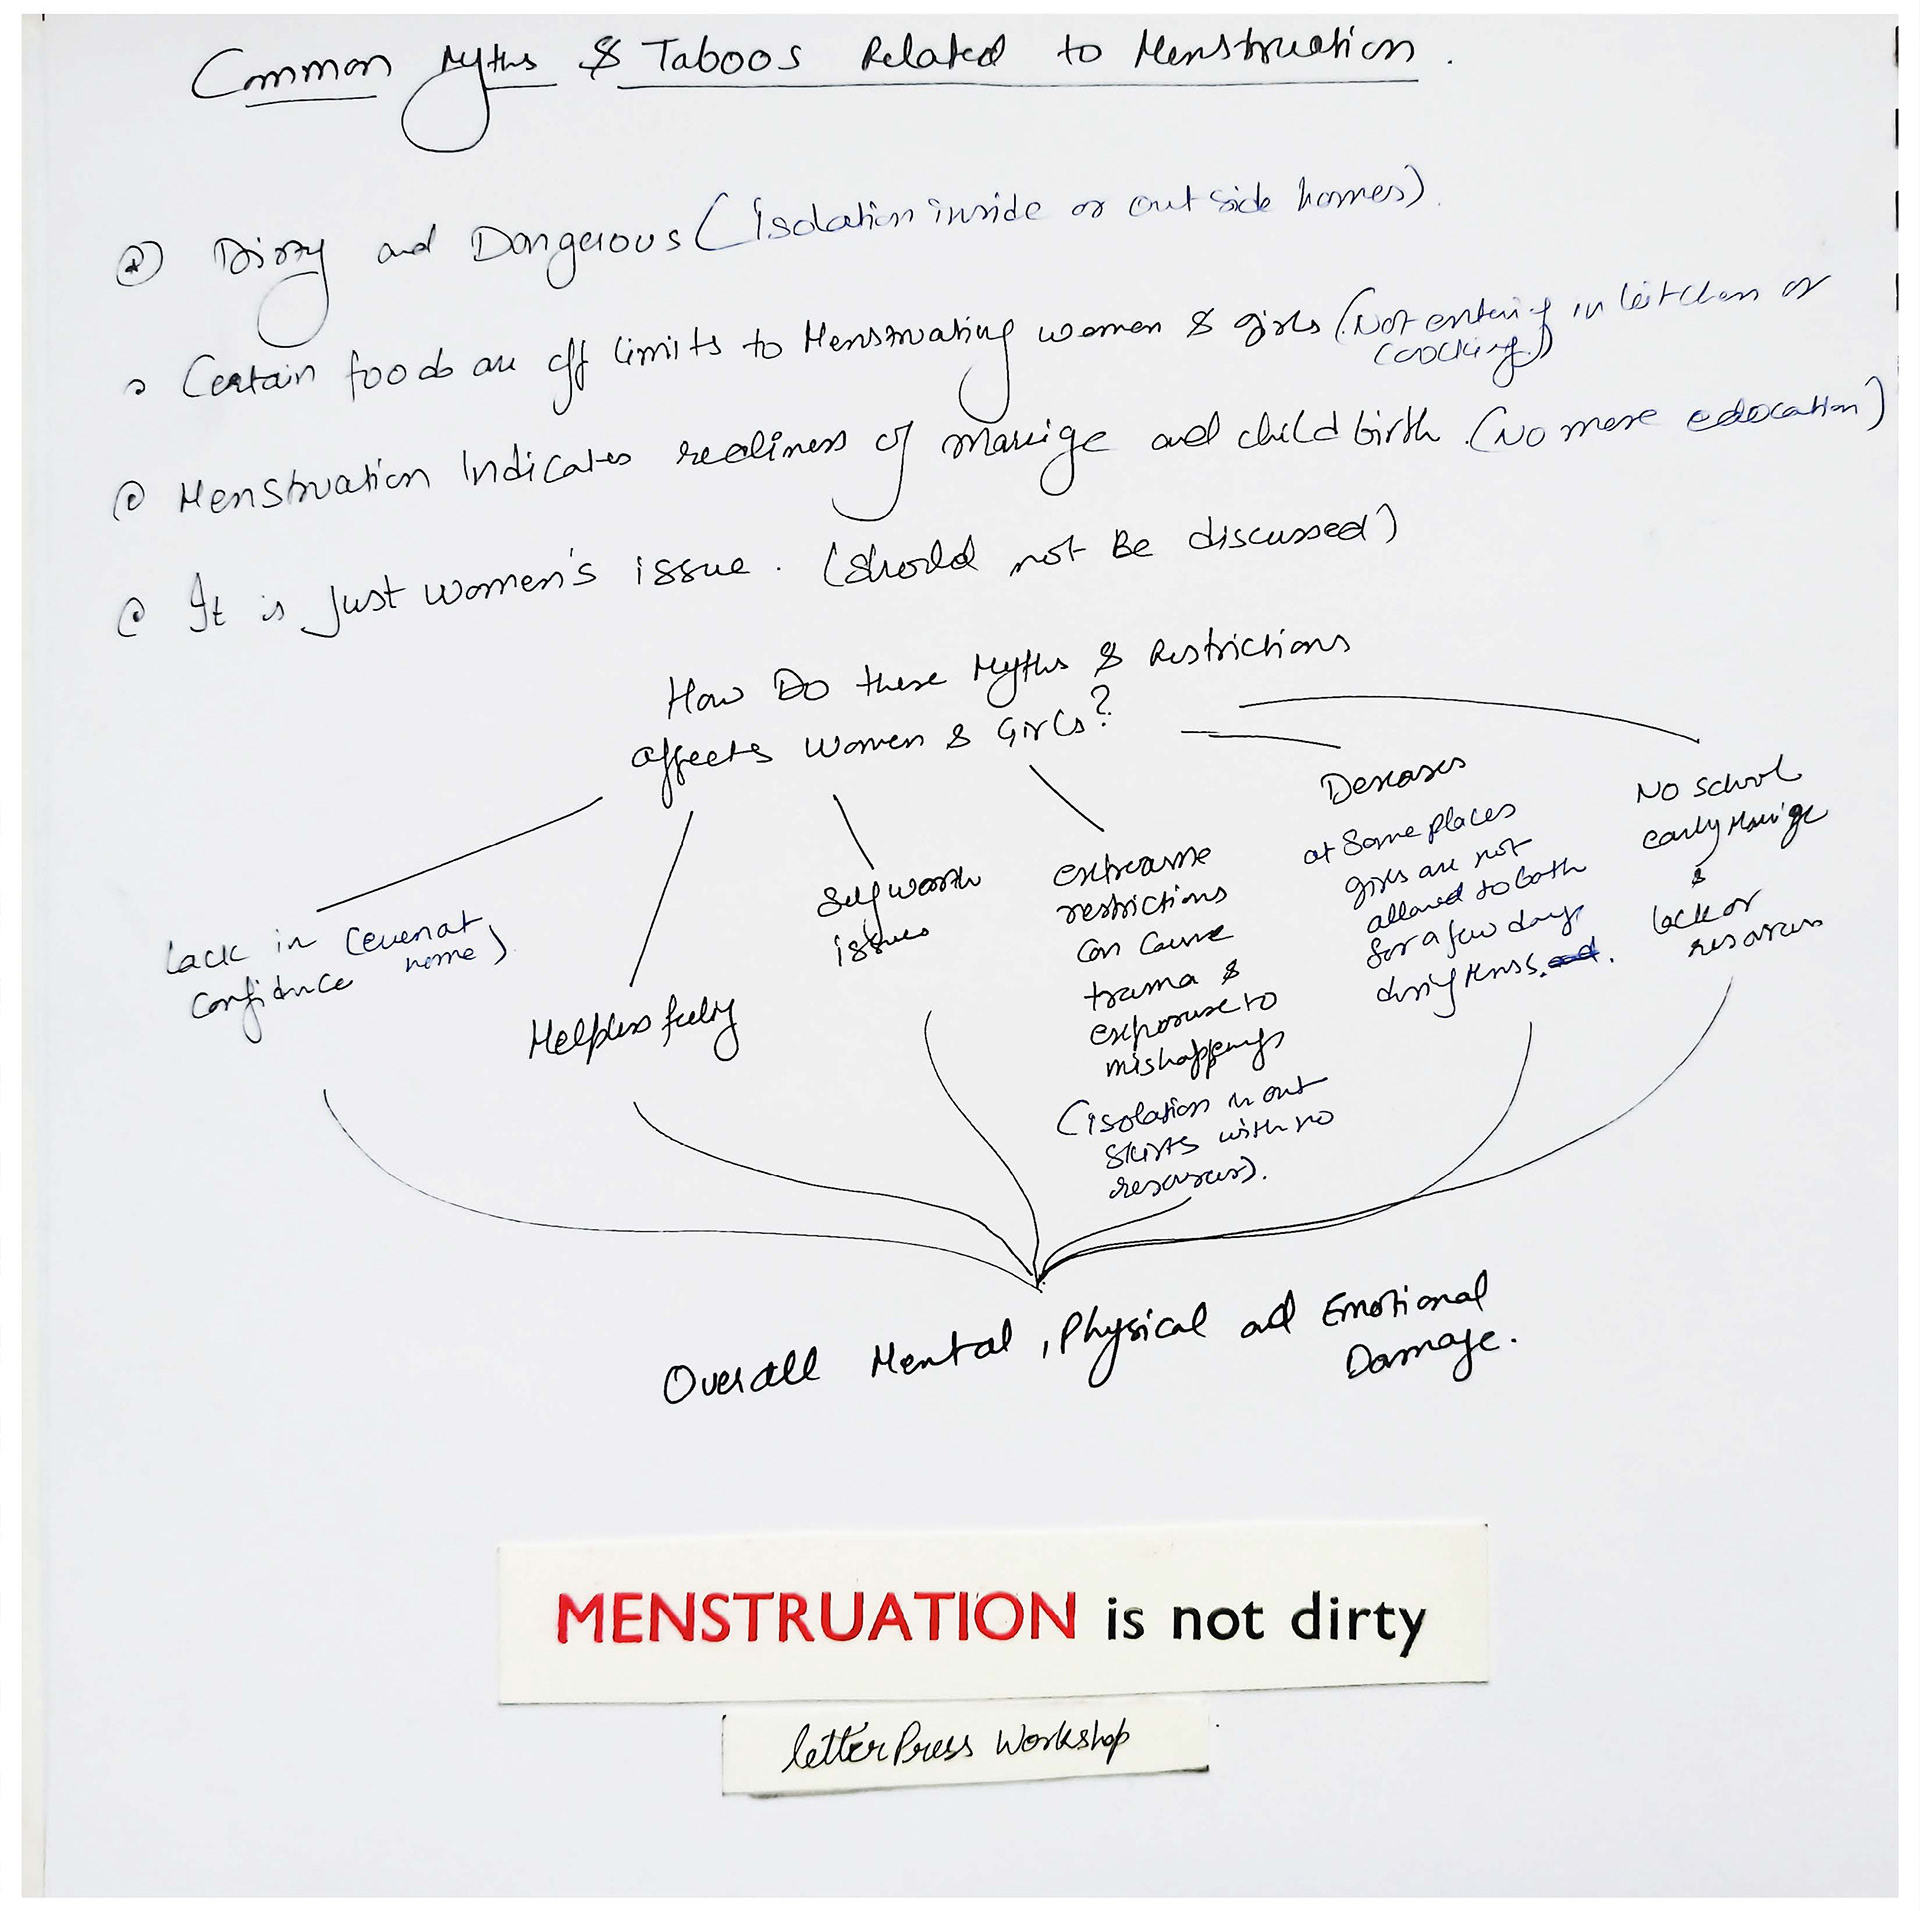 Common Myths & Taboos Related to Menstruation.
Dirty and Dangerous (isolation inside or out side homes).
Certain foods are off limits to Menstruating women & girls (Not entering in kitchen or
cooking.)
Menstruation Indicates readiness of marrige and child birth. (No more education)
It is just women's issue. (Should not Be discussed)
How Do these Myths & Restrictions
affects Women & Girls?
lack in (even at
confidence home).
Helpless feeling
Self worth
issues
extreame
restrictions
can cause
trama &
exposure to
mishappenings
(isolation in out
skirts with no
resources).
Deseases
at Some places
girls are not
allowed to bath
for a few days
during
No school
early Marrige
&
lack of
resources
Overall Mental, Physical and Emotional
Damage.
MENSTRUATION is not dirty
letterPress Workshop